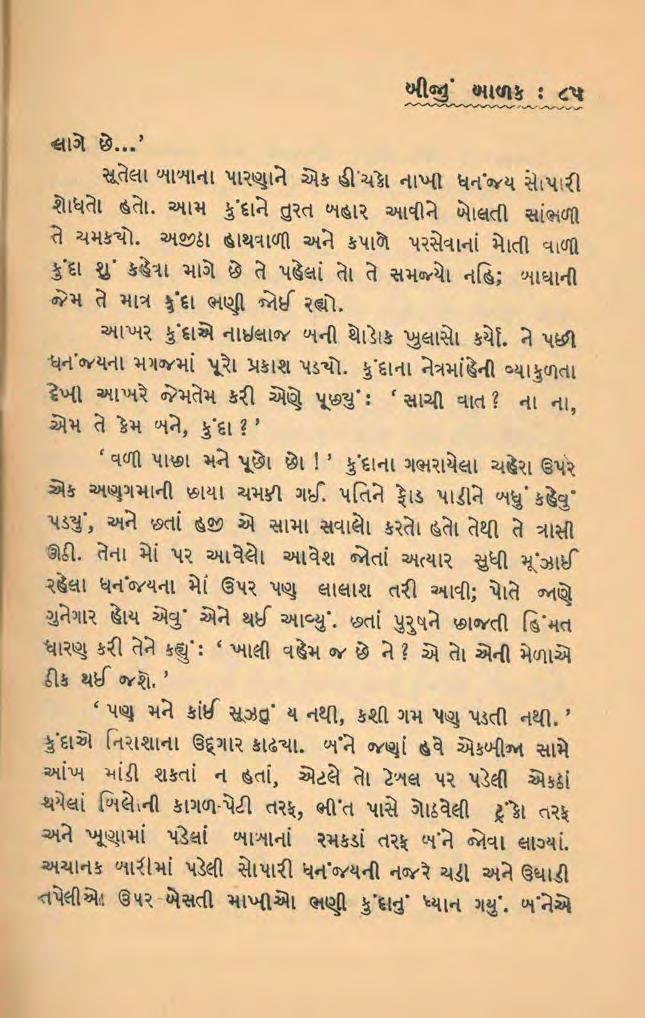 બીજું બાળક : ૮૫
લાગે છે...’
સૂતેલા બાબાના પારણાને એક હીંચકો નાખી ધનંજય સોપારી
શોધતો હતો. આમ કુંદાને તુરત બહાર આવીને બોલતી સાંભળી
તે ચમકયો. અજીઠા હાથવાળી અને કપાળે પરસેવાનાં મોતી વાળી
કુંદા શું કહેવા માગે છે તે પહેલાં તો તે સમજ્યો નહિ; બાઘાની
જેમ તે માત્ર કુંદા ભણી જોઈ રહ્યો.
આખર કુંદાએ નાઇલાજ બની થોડોક ખુલાસો કર્યો. ને પછી
ધનંજયના મગજમાં પૂરો પ્રકાશ પડયો. કુંદાના નેત્રમાંહેની વ્યાકુળતા
દેખી આખરે જેમતેમ કરી એણે પૂછ્યું : ‘ સાચી વાત? ના ના,
એમ તે કેમ બને, કુંદા ? ’
‘ વળી પાછા મને પૂછો છો ! ’ કુંદાના ગભરાયેલા ચહેરા ઉપર
એક અણગમાની છાયા ચમકી ગઈ. પતિને ફોડ પાડીને બધું કહેવું
પડયું, અને છતાં હજી એ સામા સવાલો કરતો હતો તેથી તે ત્રાસી
ઊઠી. તેના મોં પર આવેલો આવેશ જોતાં અત્યાર સુધી મૂંઝાઈ
રહેલા ધનંજયના મોં ઉપર પણ લાલાશ તરી આવી; પોતે જાણે
ગુનેગાર હોય એવું એને થઈ આવ્યું. છતાં પુરુષને છાજતી હિંમત
ધારણ કરી તેને કહ્યું : ‘ ખાલી વહેમ જ છે ને ? એ તો એની મેળાએ
ઠીક થઈ જશે. ’
‘ પણ મને કાંઈ સૂઝતું ય નથી, કશી ગમ પણ પડતી નથી. ’
કુંદાએ નિરાશાના ઉદ્દગાર કાઢયા. બંને જણાં હવે એકબીજા સામે
આંખ માંડી શકતાં ન હતાં, એટલે તો ટેબલ પર પડેલી એકઠાં
થયેલાં બિલોની કાગળ-પેટી તરફ, ભીંત પાસે ગોઠવેલી ટ્રંકો તરફ
અને ખૂણામાં પડેલાં બાબાનાં રમકડાં તરફ બંને જોવા લાગ્યાં.
અચાનક બારીમાં પડેલી સોપારી ધનંજયની નજરે ચડી અને ઉઘાડી
તપેલીઓ ઉપર બેસતી માખીઓ ભણી કુંદાનું ધ્યાન ગયું. બંનેએ